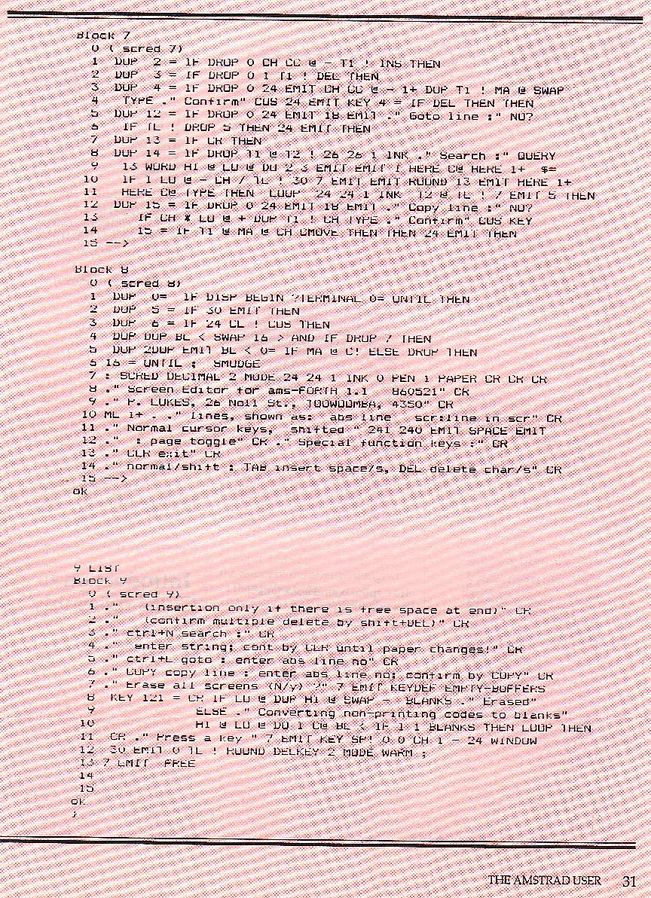 Block 7
0 ( scred 7)
1 DUP 2 = IF DROP 0 CH CC @ - T1 ! INS THEN
2 DUP 3 = IF DROP 0 1 T1 ! DEL THEN
3 DUP 4 = IF DROP 0 24 EMIT CH CC @ - 1+ DUP T1 ! MA @ SWAP
4 TYPE ." Confirm" CUS 24 EMIT KEY 4 = IF DEL THEN THEN
5 DUP 12 = IF DROP 0 24 EMIT 18 EMIT ." Goto line :" NU?
6 IF TL ! DROP 5 THEN 24 EMIT THEN
7 DUP 13 = IF CR THEN
8 DUP 14 = IF DROP T1 @ T2 ! 26 26 1 INK ." Search :" QUERY
9 13 WORD HI @ LO @ DO 2 3 EMIT EMIT I HERE C@ HERE 1+ $=
10 IF I LO @ - CH / TL ! 30 7 EMIT EMIT ROUND 13 EMIT HERE 1+
11 HERE C@ TYPE THEN LOOP 24 24 1 INK T2 @ TL ! 7 EMIT 5 THEN
12 DUP 15 = IF DROP 0 24 EMIT 18 EMIT ." Copy line :" NU?
13 IF CH * LO @ + DUP T1 ! CH TYPE ." Confirm" CUS KEY
14 15 = IF T1 @ MA @ CH CMOVE THEN THEN 24 EMIT THEN
15 -->
Block 8
0 ( scred 8)
1 DUP 0= IF DISP BEGIN ?TERMINAL 0= UNTIL THEN
2 DUP 5 = IF 30 EMIT THEN
3 DUP 6 = IF 24 CL ! CUS THEN
4 DUP DUP BL < SWAP 16 > AND IF DROP 7 THEN
5 DUP 2DUP EMIT BL < 0= IF MA @ C! ELSE DROP THEN
6 16 = UNTIL ; SMUDGE
7 : SCRED DECIMAL 2 MODE 24 24 1 INK 0 PEN 1 PAPER CR CR CR
8 ." Screen Editor for ams-FORTH 1.1 860521" CR
9 ." P. LUKES, 26 Noll St., TOOWOOMBA, 4350" CR
10 ML 1+ . ." lines, shown as: abs line scr:line in scr" CR
11 ." Normal cursor keys, shifted " 241 240 EMIT SPACE EMIT
12 ." : page toggle" CR ." Special function keys :" CR
13 ." CLR exit" CR
14 ." normal/shift : TAB insert space/s, DEL delete char/s" CR
15 -->
ok
9 LIST
Block 9
0 ( scred 9)
1 ." (insertion only if there is free space at end)" CR
2 ." (confirm multiple delete by shift+DEL)" CR
3 ." ctrl+N search :" CR
4 ." enter string; cont by CLR until paper changes!" CR
5 ." ctrl+L goto : enter abs line no" CR
6 ." COPY copy line : enter abs line no; confirm by COPY" CR
7 ." Erase all screens (N/y) ?" 7 EMIT KEYDEF EMPTY-BUFFERS
8 KEY 121 = CR IF LO @ DUP HI @ SWAP - BLANKS ." Erased"
9 ELSE ." Converting non-printing codes to blanks"
10 HI @ LO @ DO I C@ BL < IF I 1 BLANKS THEN LOOP THEN
11 CR ." Press a key " 7 EMIT KEY SP! 0 0 CH 1 - 24 WINDOW
12 30 EMIT 0 TL ! ROUND DELKEY 2 MODE WARM ;
13 7 EMIT FREE
14
15
ok
;
THE AMSTRAD USER 31